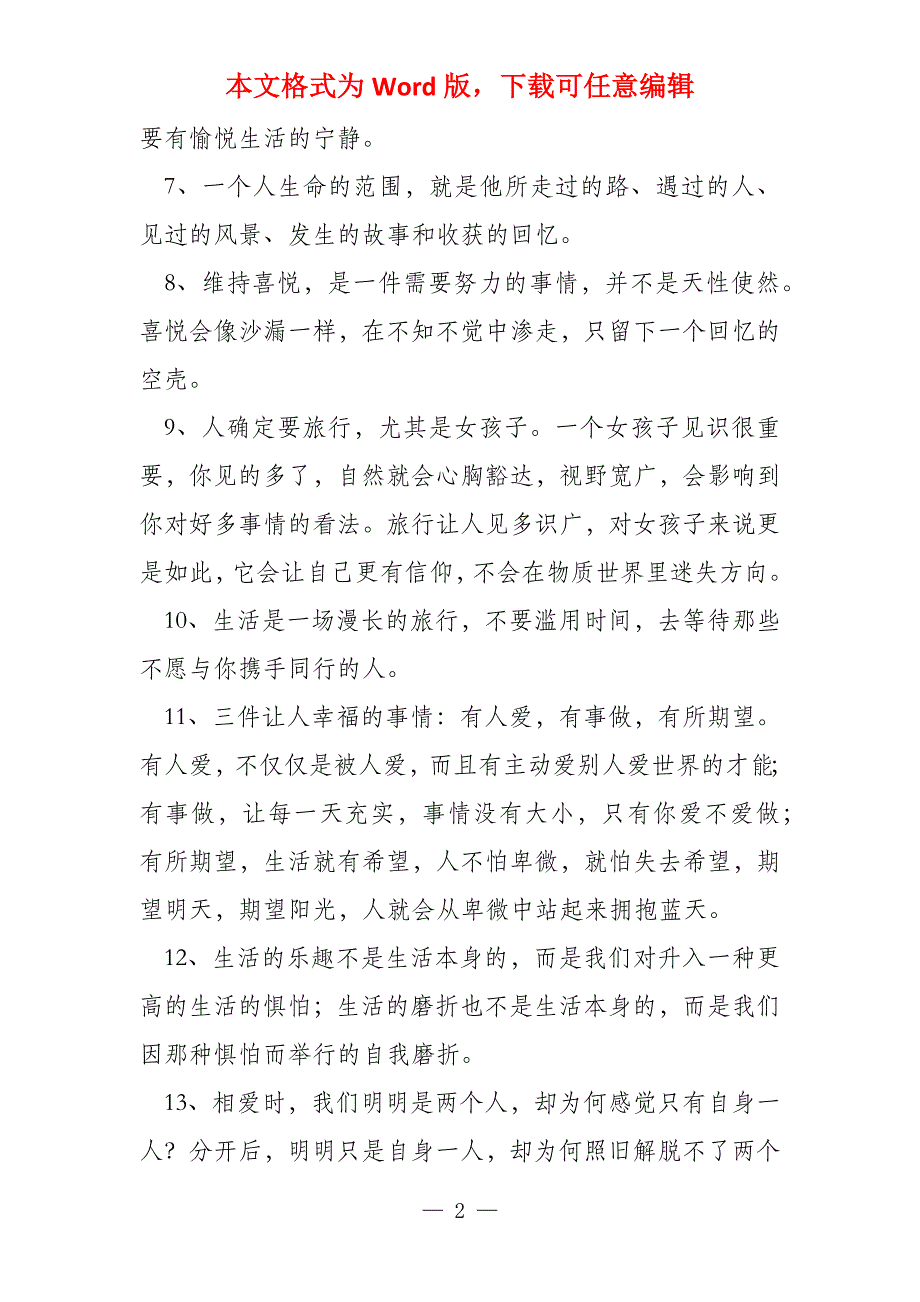 本文格式为 Word 版，下载可任意编辑
要有愉悦生活的宁静。
7、一个人生命的范围，就是他所走过的路、遇过的人、
见过的风景、发生的故事和收获的回忆。
8、维持喜悦，是一件需要努力的事情，并不是天性使然。
喜悦会像沙漏一样，在不知不觉中渗走，只留下一个回忆的
空壳。
9、人确定要旅行，尤其是女孩子。一个女孩子见识很重
要，你见的多了，自然就会心胸豁达，视野宽广，会影响到
你对好多事情的看法。旅行让人见多识广，对女孩子来说更
是如此，它会让自己更有信仰，不会在物质世界里迷失方向。
10、生活是一场漫长的旅行，不要滥用时间，去等待那些
不愿与你携手同行的人。
11、三件让人幸福的事情：有人爱，有事做，有所期望。
有人爱，不仅仅是被人爱，而且有主动爱别人爱世界的才能；
有事做，让每一天充实，事情没有大小，只有你爱不爱做；
有所期望，生活就有希望，人不怕卑微，就怕失去希望，期
望明天，期望阳光，人就会从卑微中站起来拥抱蓝天。
12、生活的乐趣不是生活本身的，而是我们对升入一种更
高的生活的惧怕；生活的磨折也不是生活本身的，而是我们
因那种惧怕而举行的自我磨折。
13、相爱时，我们明明是两个人，却为何感觉只有自身一
人？分开后，明明只是自身一人，却为何照旧解脱不了两个
— 2 —